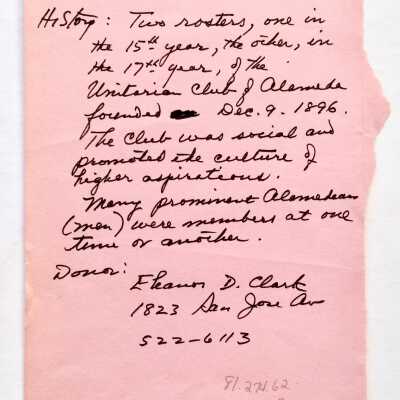 History: Two rosters, one in
the 15th year, the other, in
the 17th year, of the
Unitarian Club of Alameda
founded Dec. 9. 1896.
The Club was social and
promoted the culture of
higher aspirations.
Many prominent Alamedean
(men) were members at one
time or another.
Donor:
Eleanor D. Clark
1823 San Jose Av
522-6113
81.274.62